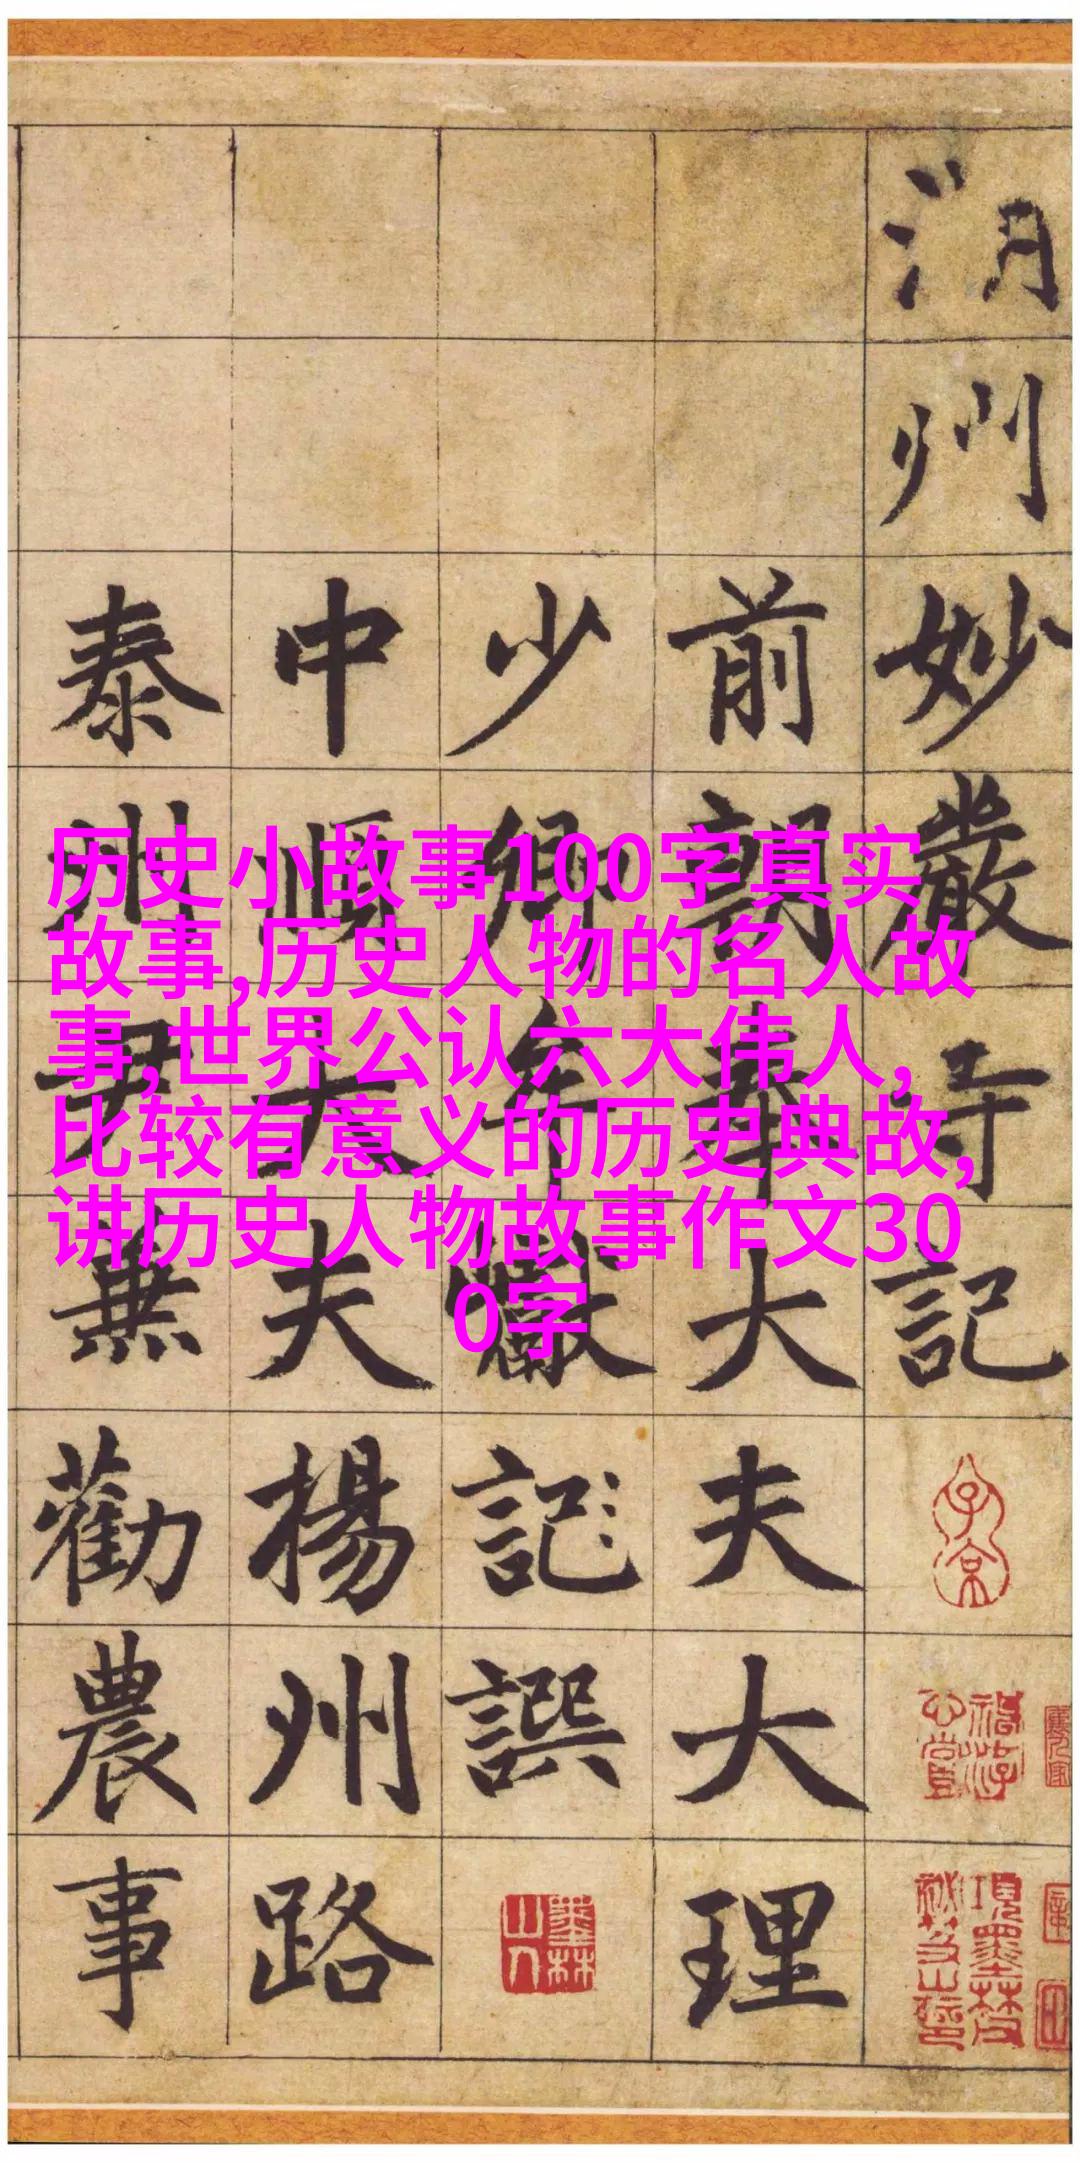 历史小故事100字真实
故事,历史人物的名人故
事,世界公认六大伟人,
比较有意义的历史典故,
讲历史人物故事作文30
0字
湖州妙嚴寺記
前朝奉大夫大理
少卿牟巘記譔
中順大夫揚州路
泰州尹兼勸農事
子京
墨林山人